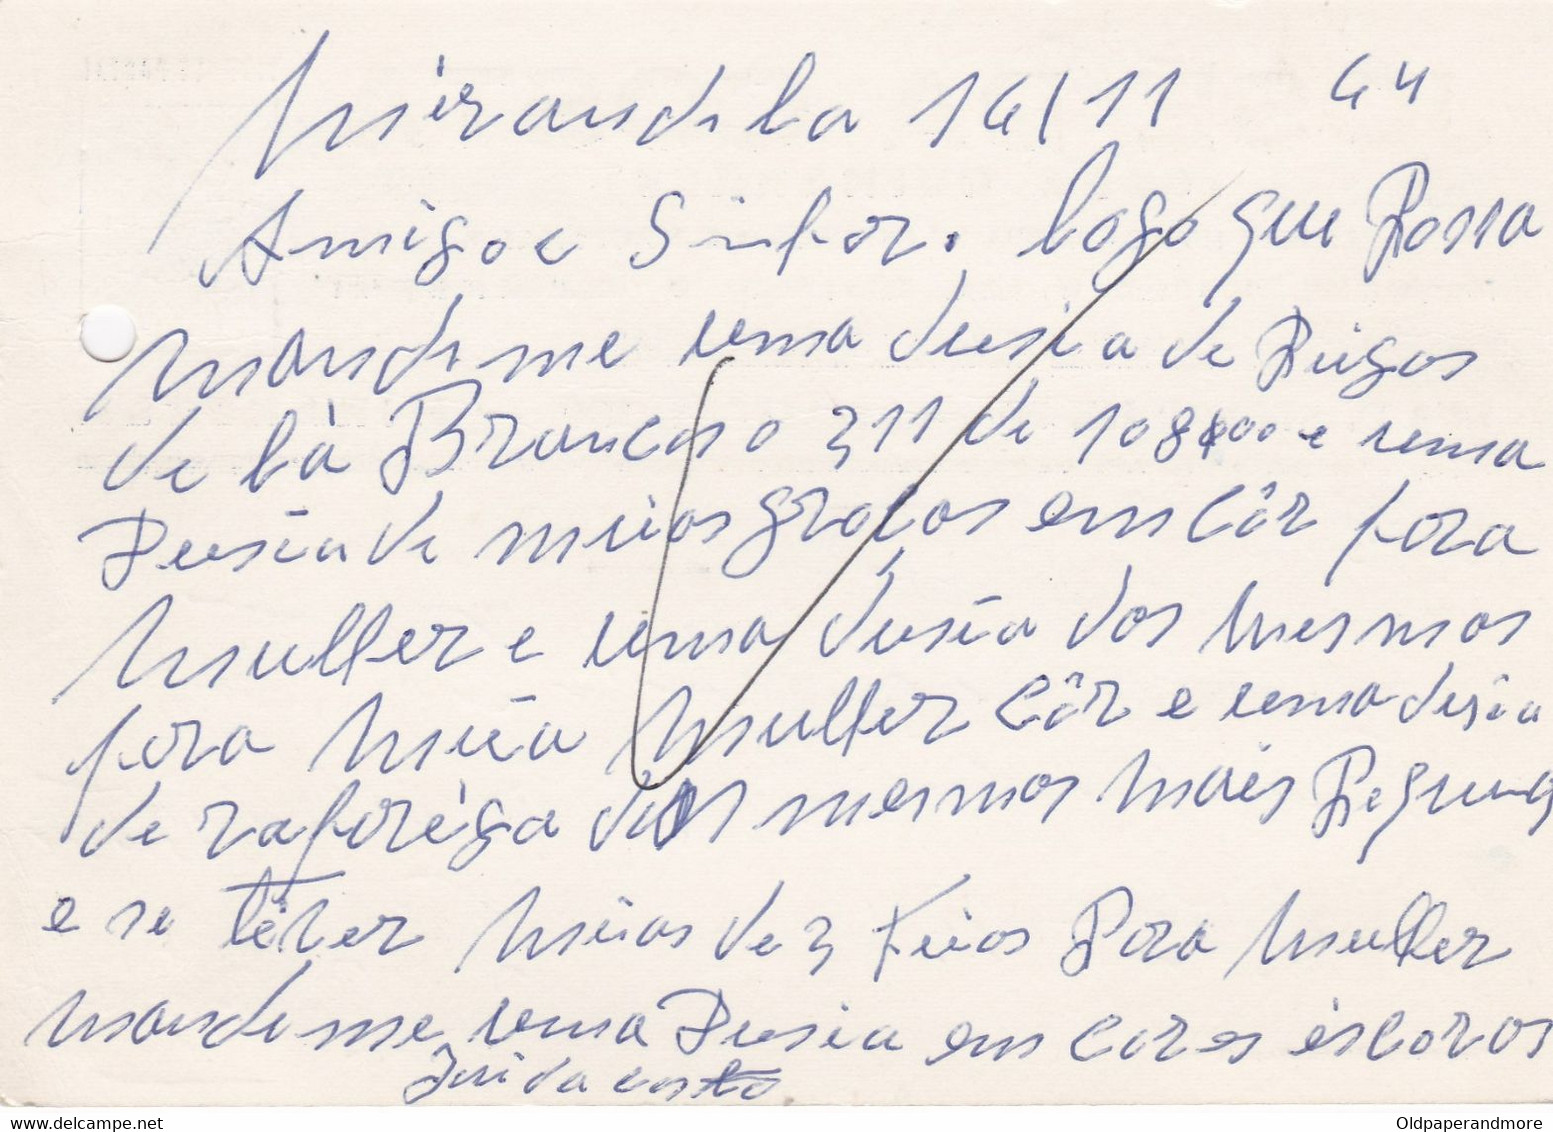 Mirandela 14/11 64
Amigo e Sinhor. logo que Possa
mandi me uma dusia de Piugos
de là Brancas o 311 de 108$00 e uma
Dusia de miias grocas em Côr para
mulher e uma dusia dos mesmos
para mulher Côr e uma dusia
de rapariga dos mesmos mais Pequena
e se tiver miias de 3 Fiios Para mulher
mandi me uma Dusia em cores éscoros
da costa
Oldpaperandmore